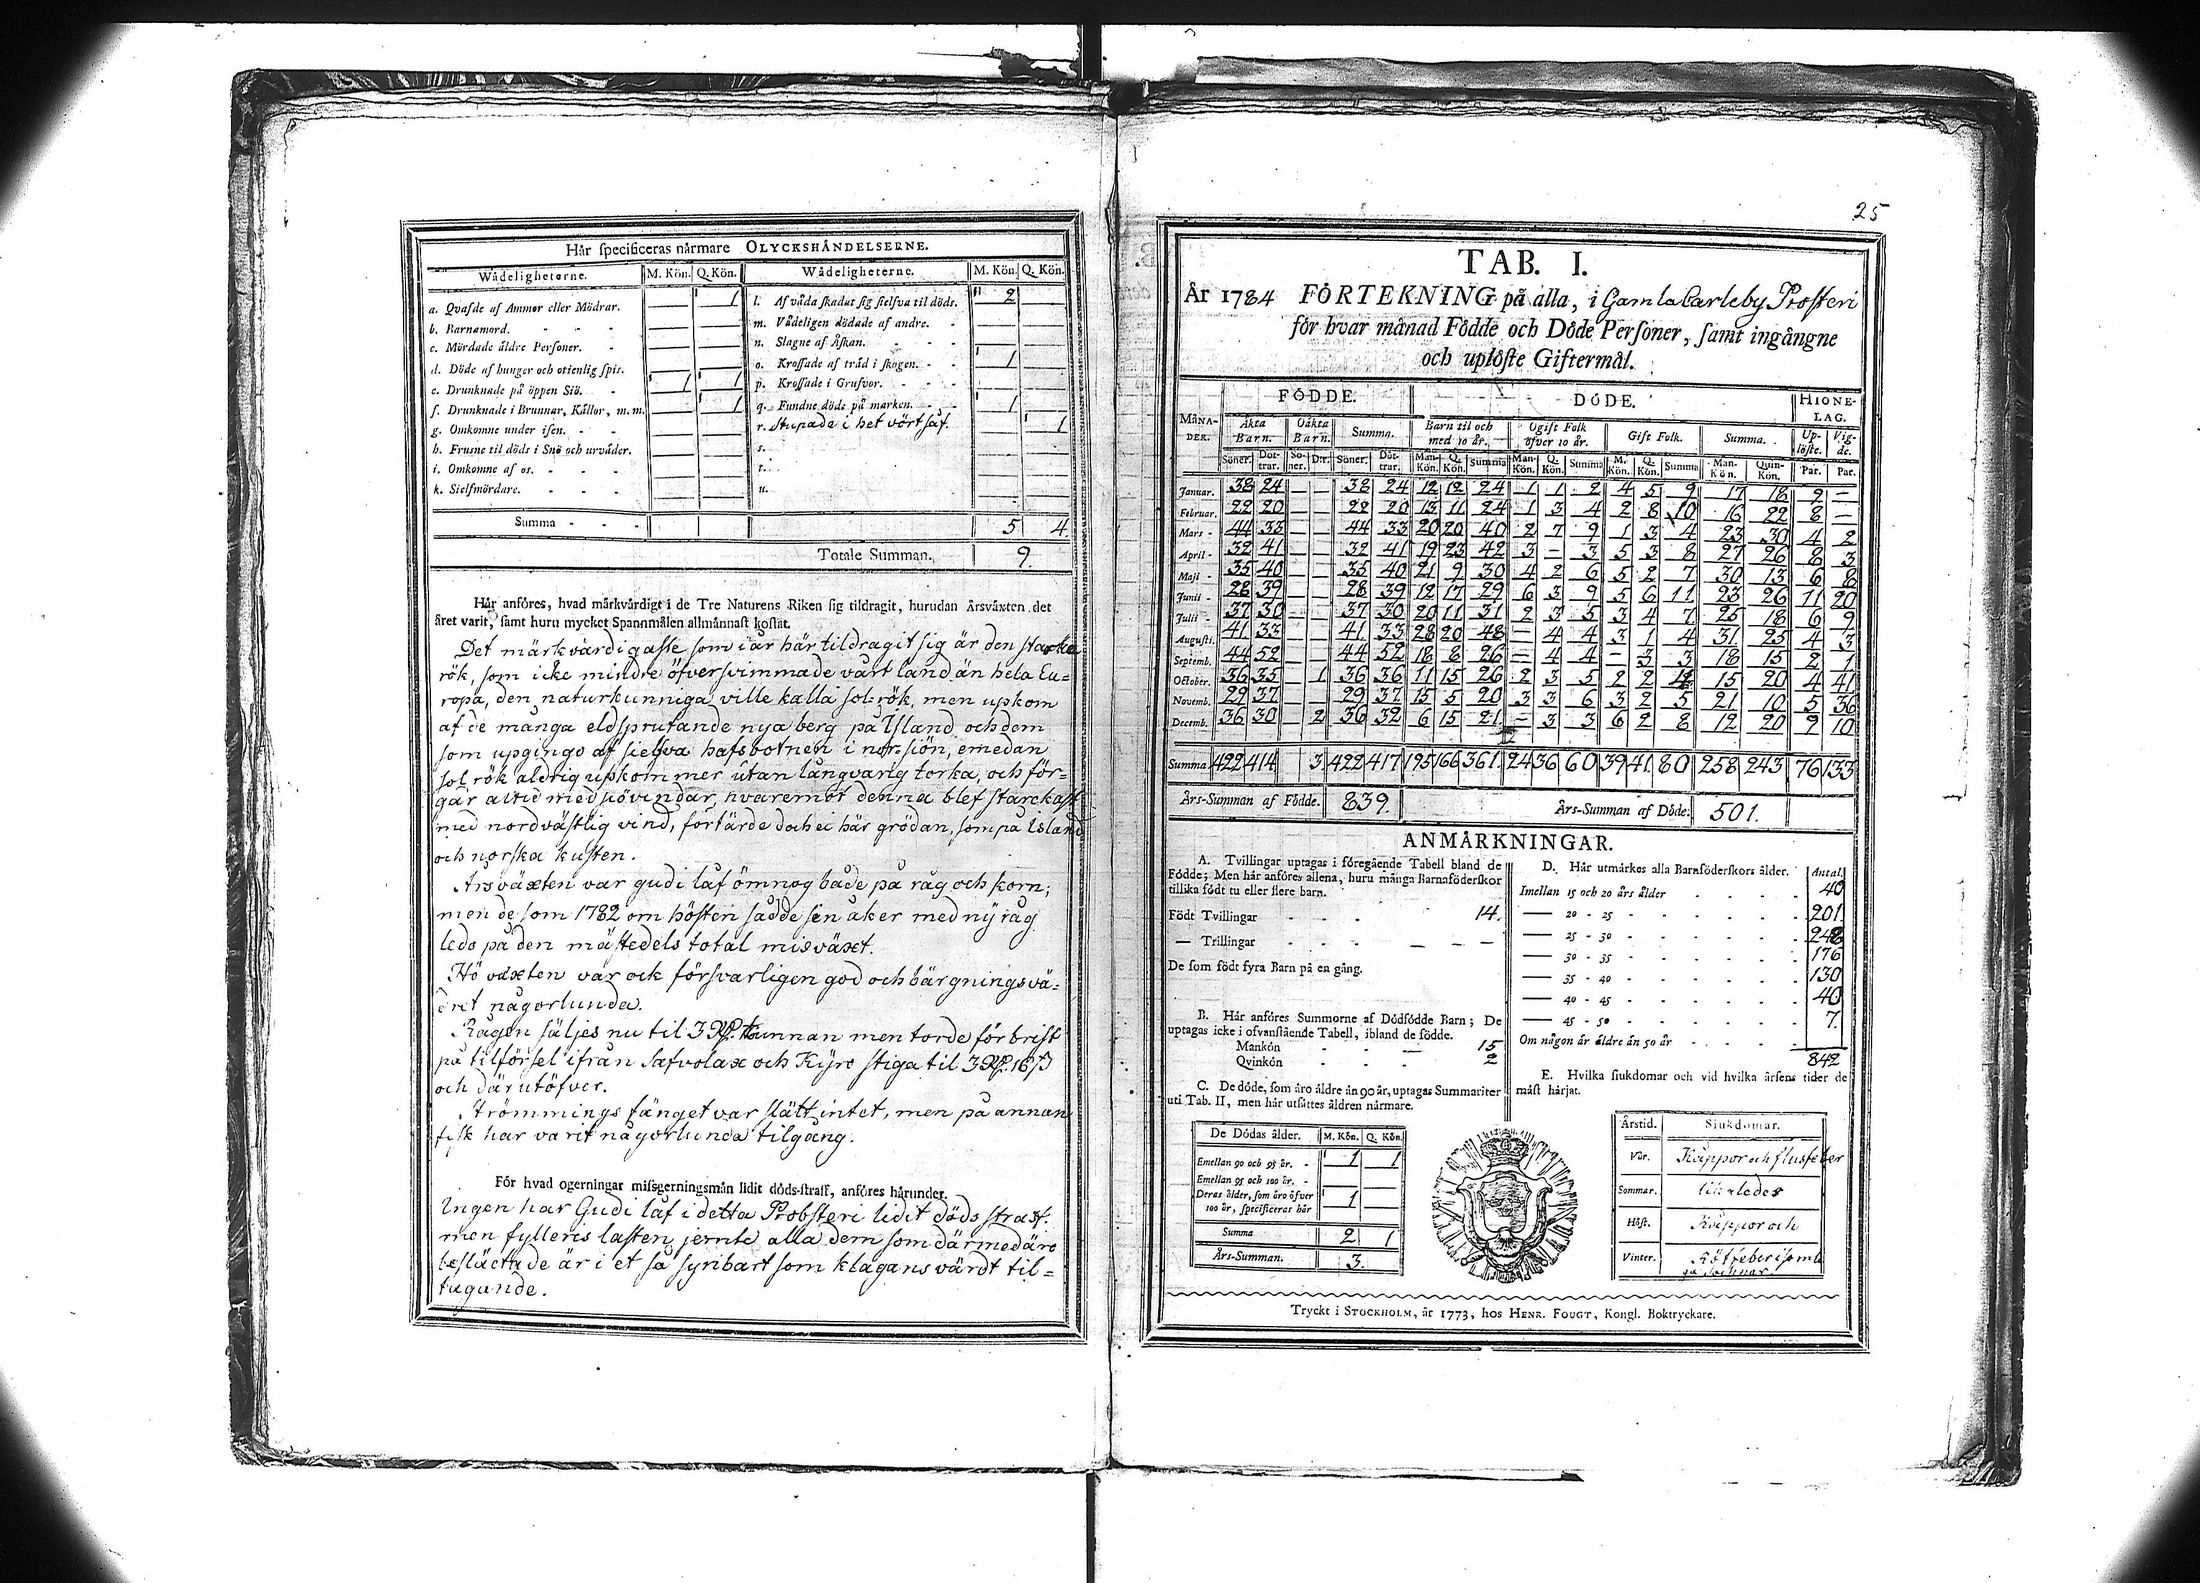 Hår ſpecificeras nårmare OLYCKSHÅNDELSERNE.
Wådeligheterne. M. Kön. Q. Kön. Wådeligheterne. M. Kön. Q. Kön.
a. Qvafde af Ammor eller Mödrar. 1 l. Af våda ſkadat ſig ſielfva til döds. 2
b. Barnamord. m. Vådeligen dödade af andre.
c. Mördade åldre Perſoner. n. Slagne af Åſkan.
d. Döde af hunger och otienlig ſpis. o. Kroſſade af tråd i ſkogen. 1
e. Drunknade på öppen Siö. 1 1 p. Kroſſade i Grufvor.
f. Drunknade i Brunnar, Kållor, m. m. 1 q. Fundne döde på marken. 1
g. Omkomne under iſen. r. Stupade i het vört ſaf. 1
h. Fruſne til döds i Snö och urvåder. s.
i. Omkomne af os. t.
k. Sielfmördare. u.
Summa 5 4
Totale Summan. 9.
Hår anföres, hvad mårkvårdigt i de Tre Naturens Riken ſig tildragit, hurudan årsvåxten det
året varit, ſamt huru mycket Spannmålen allmånnaſt koſtat.
Det märkvärdigaſte ſom i år här tildragit ſig är den ſtarka
rök, ſom icke mindre öfverſvimmade vårt land än hela Eu=
ropa, den naturkunniga ville kalla ſol-rök, men upkom
af de många eldſprutande nya berg på Iſland och dem
ſom upgingo af ſielfva hafsbotnen i norſiön, emedan
ſol rök aldrig upkommer utan långvarig torka, och för=
går altid med ſiövindar, hvaremot denna blef ſtarckaſt
med nordväſtlig vind, förtärde doch ei här grödan, ſom på Iſland
och norſka kuſten.
Årsväxten var gudi låf ömnog både på råg och korn;
men de ſom 1782 om höſten ſådde ſin åker med ny råg
ledo på den mäſtedels total misväxt.
Hö växten var ock förſvarligen god och bärgningsvä=
dret någorlunda.
Rågen ſäljes nu til 3 Rdr. tunnan men torde för briſt
på tilförſel ifrån Safvolax och Kyro ſtiga til 3 Rdr. 16 ß
och därutöfver.
Strömmings fänget var ſlätt intet, men på annan
fiſk har varit någorlunda tilgång.
För hvad ogerningar miſsgerningsmån lidit döds-ſtraff, anföres hårunder.
Ingen har Gudi låf i detta Probſteri lidit döds ſtraff.
men fylleris laſten jemte alla dem ſom därmed äro
beſläcktade är i et ſå ſynbart ſom klagans värdt til=
tagande.
25
TAB. I.
År 1784 FÖRTEKNING på alla, i Gamla Carleby Proſteri
för hvar månad Födde och Döde Perſoner, ſamt ingångne
och uplöſte Giftermål.
FÖDDE. DÖDE. HIONE-
LAG.
MÅNA-
DER. Åkta
Barn. Oåkta
Barn. Summa. Barn til och
med 10 år. Ogift Folk
öfver 10 år. Gift Folk. Summa. Up-
löſte. Vig-
de.
Söner. Döt-
trar. So-
ner. D:r. Söner. Döt-
trar. Man-
Kön. Q.
Kön. Summa Man-
Kön. Q.
Kön. Summa M.
Kön. Q.
Kön. Summa Man-
Kön. Quin-
Kön. Par. Par.
Januar. 38 24 — — 38 24 12 12 24 1 1 2 4 5 9 17 18 9 —
Februar. 22 20 — — 22 20 13 11 24 1 3 4 2 8 10 16 22 8 —
Mars 44 33 — — 44 33 20 20 40 2 7 9 1 3 4 23 30 4 2
April 32 41 — — 32 41 19 23 42 3 — 3 5 3 8 27 26 8 3
Maji 35 40 — — 35 40 21 9 30 4 2 6 5 2 7 30 13 6 8
Junii 28 39 — — 28 39 12 17 29 6 3 9 5 6 11 23 26 11 20
Julii 37 30 — — 37 30 20 11 31 2 3 5 3 4 7 25 18 6 9
Auguſti. 41 33 — — 41 33 28 20 48 — 4 4 3 1 4 31 25 4 3
Septemb. 44 52 — — 44 52 18 8 26 — 4 4 — 3 3 18 15 2 1
October. 36 35 — 1 36 36 11 15 26 2 3 5 2 2 4 15 20 4 41
Novemb. 29 37 — — 29 37 15 5 20 3 3 6 3 2 5 21 10 5 36
Decemb. 36 30 — 2 36 32 6 15 21 — 3 3 6 2 8 12 20 9 10
Summa 422 414 3 422 417 195 166 361 24 36 60 39 41 80 258 243 76 133
Års-Summan af Födde. 839. Års-Summan af Döde. 501.
ANMÅRKNINGAR.
A. Tvillingar uptagas i föregående Tabell bland de
Födde; Men hår anföres allena, huru många Barnaföderſkor
tillika födt tu eller flere barn.
Födt Tvillingar 14.
— Trillingar — — —
De ſom födt fyra Barn på en gång.
B. Hår anföres Summorne af Dödfödde Barn; De
uptagas icke i ofvanſtående Tabell, ibland de födde.
Mankön 15
Qvinkön 2
C. De döde, ſom åro åldre ån 90 år, uptagas Summariter
uti Tab. II, men hår utſåttes åldren nårmare.
De Dödas ålder. M. Kön. Q. Kön.
Emellan 90 och 95 år. 1 1
Emellan 95 och 100 år.
Deras ålder, ſom åro öfver
100 år, ſpecificeras hår 1
Summa 2 1
Års-Summan. 3.
D. Hår utmårkes alla Barnföderſkors ålder. Antal.
Imellan 15 och 20 års ålder 40
— 20 - 25 201
— 25 - 30 248
— 30 - 35 176
— 35 - 40 130
— 40 - 45 40
— 45 - 50 7.
Om någon år åldre ån 50 år
842
E. Hvilka ſiukdomar och vid hvilka årſens tider de
måſt hårjat.
Årstid. Siukdomar.
Vår. Koppor och fluſfeber
Sommar. likaledes
Höſt. Koppor och
Vinter. Rötfeber i ſomli
ga Socknar
Tryckt i STOCKHOLM, år 1773, hos HENR. FOUGT, Kongl. Boktryckare.